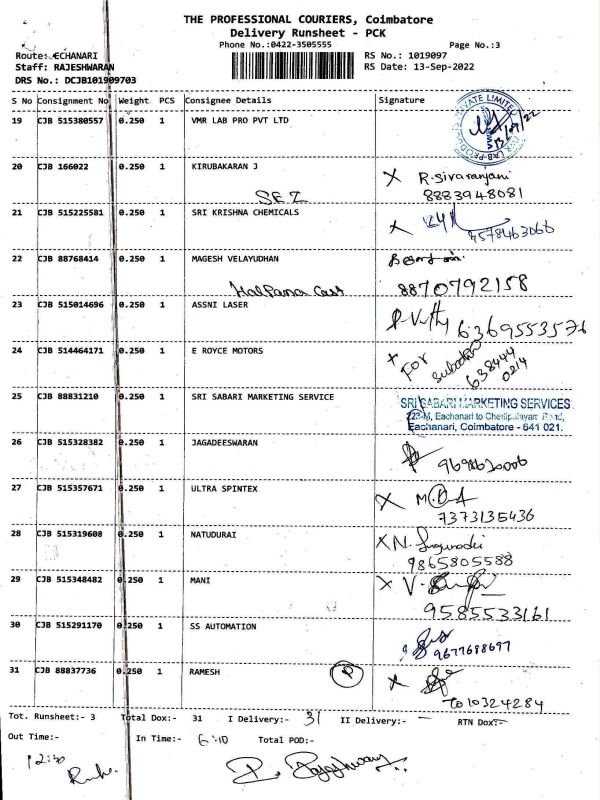 THE PROFESSIONAL COURIERS, Coimbatore
Delivery Runsheet - PCK
Phone No.:0422-3505555 Page No.:3
Route: ECHANARI RS No.: 1019097
Staff: RAJESHWARAN RS Date: 13-Sep-2022
DRS No.: DCJB101909703
S No Consignment No Weight PCS Consignee Details Signature
19 CJB 515380557 0.250 1 VMR LAB PRO PVT LTD
13/09/22
20 CJB 166022 0.250 1 KIRUBAKARAN J X R.Sivaranjani
SEZ 8883948081
21 CJB 515225581 0.250 1 SRI KRISHNA CHEMICALS X
22 CJB 88768414 0.250 1 MAGESH VELAYUDHAN
Halpana Cast 8870792158
23 CJB 515014696 0.250 1 ASSNI LASER
6369553576
24 CJB 514464171 0.250 1 E ROYCE MOTORS
FOR
638444
0214
25 CJB 88831210 0.250 1 SRI SABARI MARKETING SERVICE SRI SABARI MARKETING SERVICES
223-M, Eachanari to Chettipalayam Road,
Eachanari, Coimbatore - 641 021.
26 CJB 515328382 0.250 1 JAGADEESWARAN
27 CJB 515357671 0.250 1 ULTRA SPINTEX X
7373135436
28 CJB 515319608 0.250 1 NATUDURAI X N.
9865805588
29 CJB 515348482 0.250 1 MANI X V.
9585533161
30 CJB 515291170 0.250 1 SS AUTOMATION
9677698697
31 CJB 88837736 0.250 1 RAMESH P X
7010324284
Tot. Runsheet:- 3 Total Dox:- 31 I Delivery:- 31 II Delivery:- - RTN Dox:-
Out Time:- In Time:- 6:10 Total POD:-
12:30